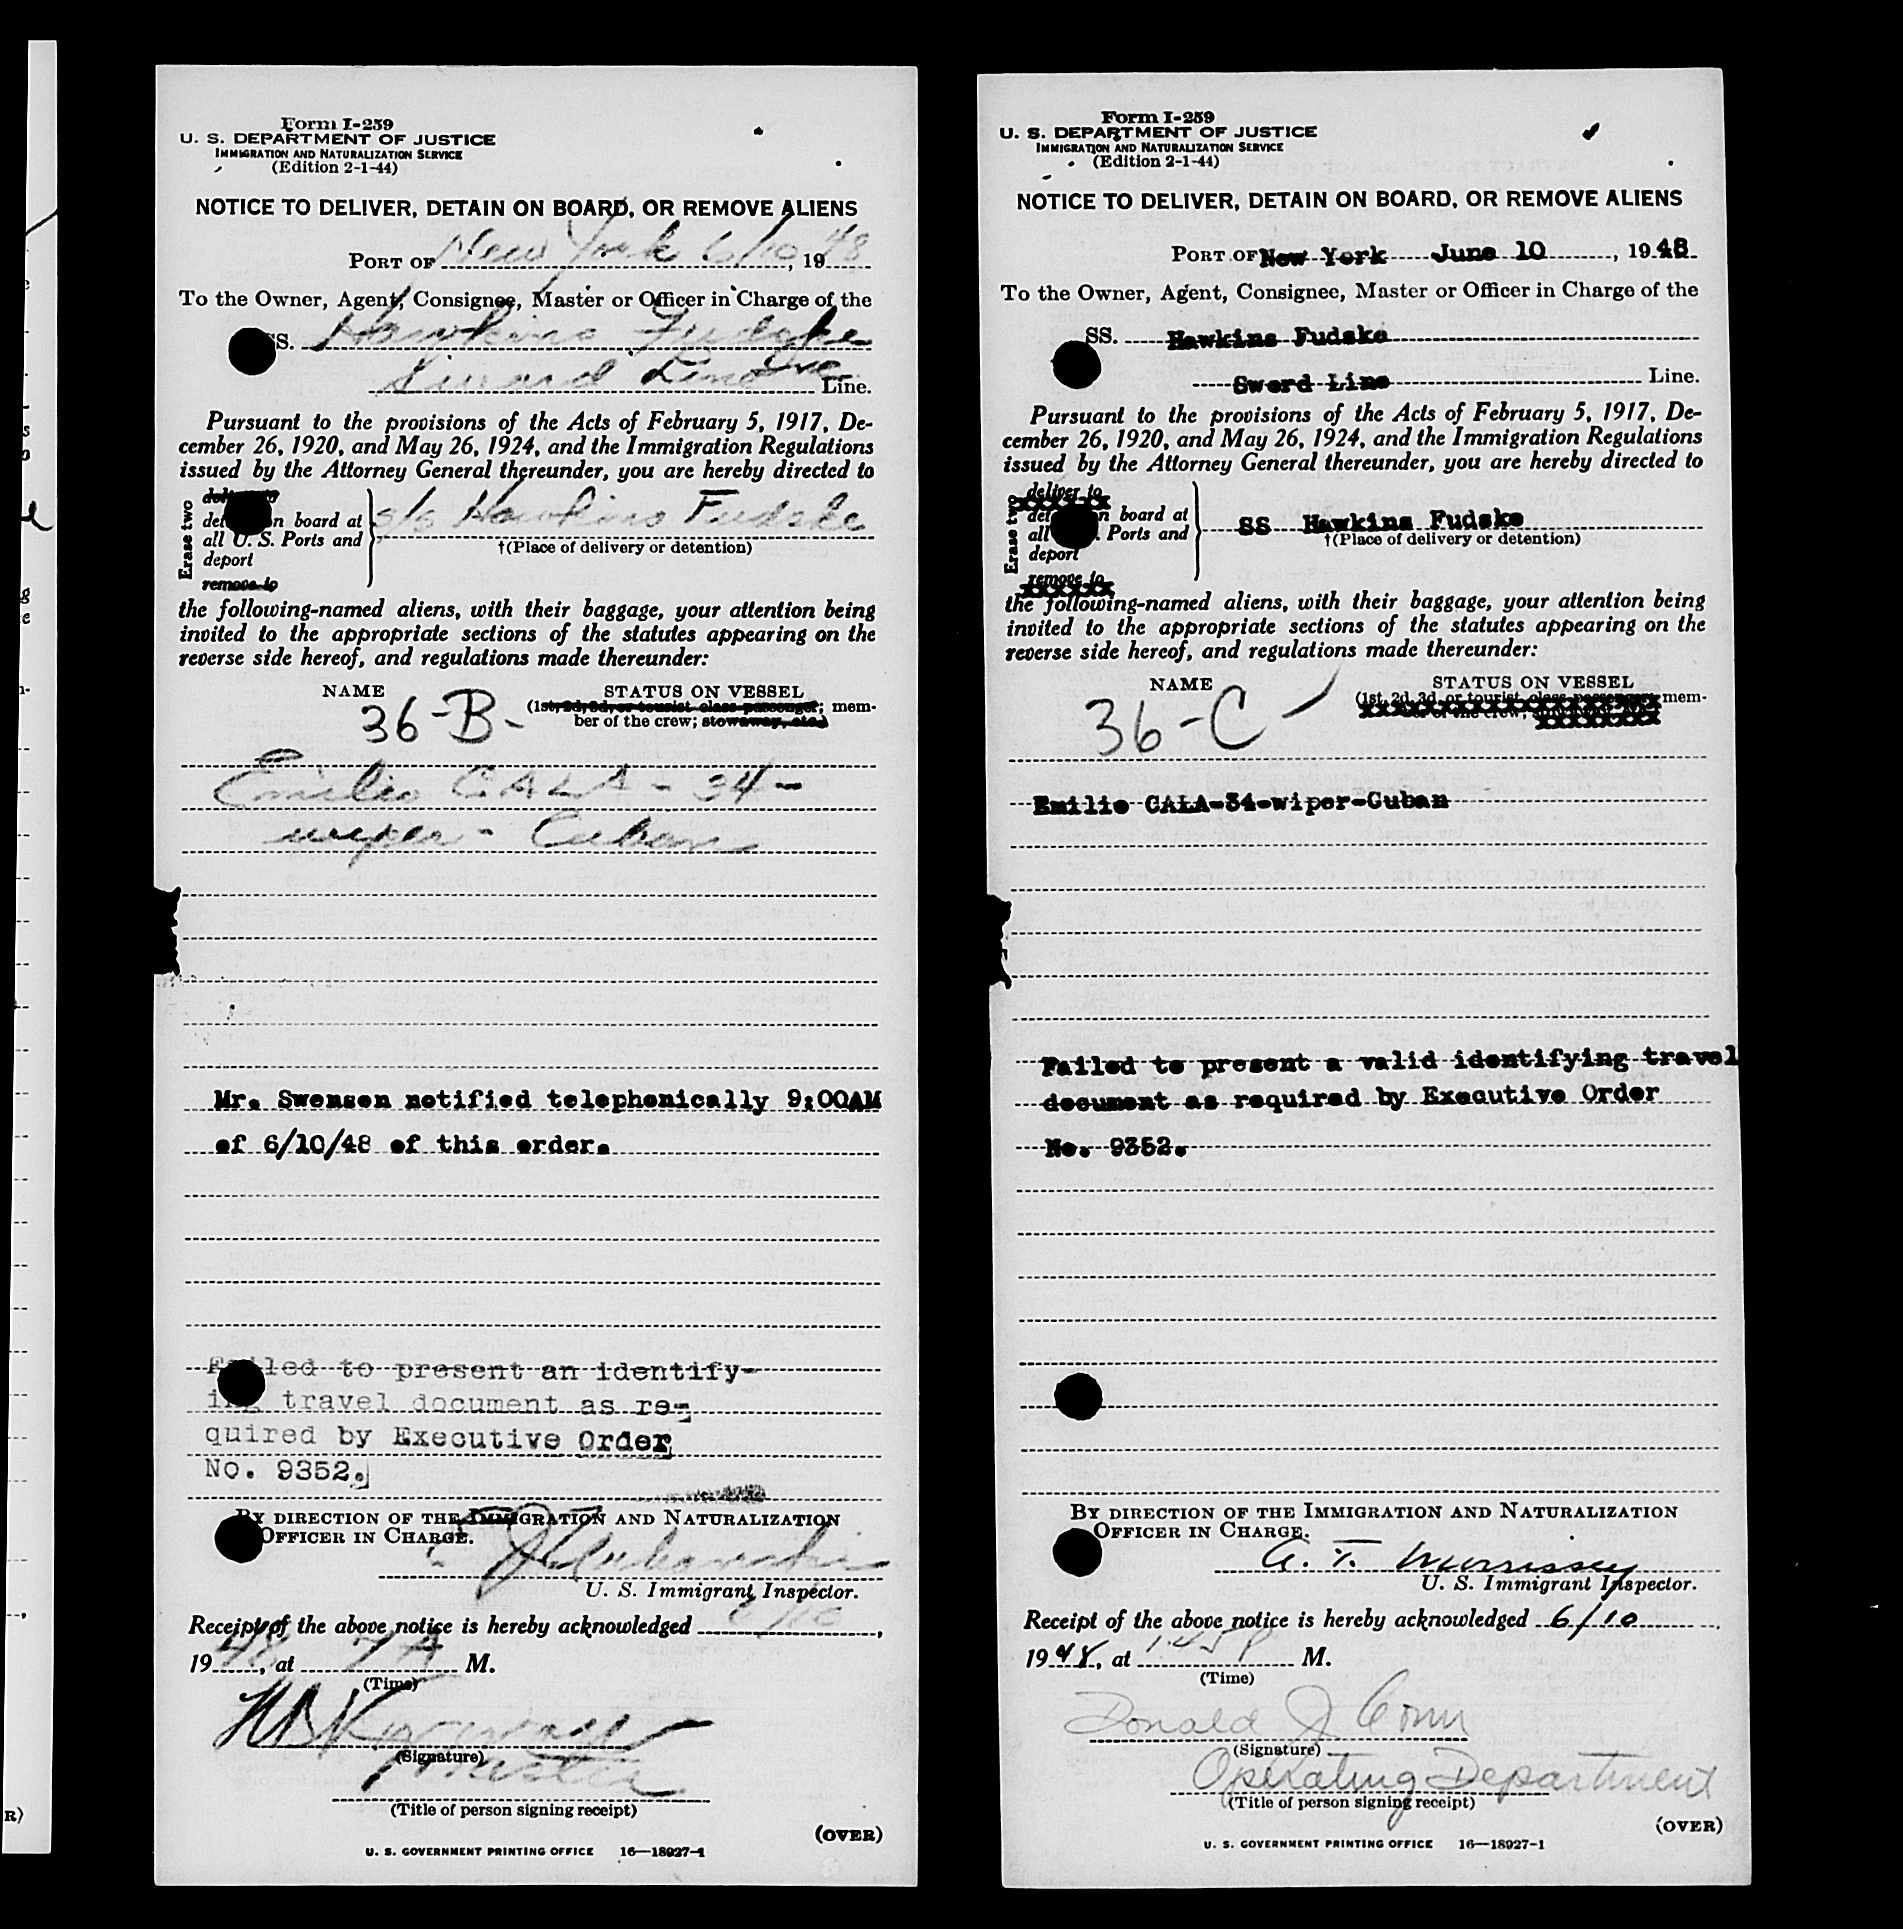 Form I-259
U. S. DEPARTMENT OF JUSTICE
IMMIGRATION AND NATURALIZATION SERVICE
(Edition 2-1-44)
NOTICE TO DELIVER, DETAIN ON BOARD, OR REMOVE ALIENS
PORT OF New York 6/10, 1948
To the Owner, Agent, Consignee, Master or Officer in Charge of the
SS. Hawkins Fudske
Line Inc Line.
Pursuant to the provisions of the Acts of February 5, 1917, De-
cember 26, 1920, and May 26, 1924, and the Immigration Regulations
issued by the Attorney General thereunder, you are hereby directed to
Erase two
deliver to
det n board at s/s Hawkins Fudske
all U. S. Ports and
†(Place of delivery or detention)
deport
remove to
the following-named aliens, with their baggage, your attention being
invited to the appropriate sections of the statutes appearing on the
reverse side hereof, and regulations made thereunder:
NAME STATUS ON VESSEL
36-B- (1st, 2d, 3d, or tourist class passenger; mem-
ber of the crew; stowaway, etc.)
Emilio CALA - 34 -
wiper - Cuban
Mr. Swensen notified telephonically 9:00AM
of 6/10/48 of this order.
Failed to present an identify-
ing travel document as re-
quired by Executive Order
No. 9352.
BY DIRECTION OF THE IMMIGRATION AND NATURALIZATION
OFFICER IN CHARGE.
U. S. Immigrant Inspector.
Receipt of the above notice is hereby acknowledged 6/10,
1948, at 7 A M.
(Time)
(Signature)
Master
(Title of person signing receipt)
(OVER)
U. S. GOVERNMENT PRINTING OFFICE 16—18927-1
Form I-259
U. S. DEPARTMENT OF JUSTICE
IMMIGRATION AND NATURALIZATION SERVICE
(Edition 2-1-44)
NOTICE TO DELIVER, DETAIN ON BOARD, OR REMOVE ALIENS
PORT OF New York June 10, 1948
To the Owner, Agent, Consignee, Master or Officer in Charge of the
SS. Hawkins Fudske
Sword Line Line.
Pursuant to the provisions of the Acts of February 5, 1917, De-
cember 26, 1920, and May 26, 1924, and the Immigration Regulations
issued by the Attorney General thereunder, you are hereby directed to
Erase two
deliver to
det n board at SS Hawkins Fudske
all . Ports and
†(Place of delivery or detention)
deport
remove to
the following-named aliens, with their baggage, your attention being
invited to the appropriate sections of the statutes appearing on the
reverse side hereof, and regulations made thereunder:
NAME STATUS ON VESSEL
36-C (1st, 2d, 3d, or tourist class passenger; mem-
ber of the crew;
Emilio CALA-34-wiper-Cuban
Failed to present a valid identifying travel
document as required by Executive Order
No. 9352.
BY DIRECTION OF THE IMMIGRATION AND NATURALIZATION
OFFICER IN CHARGE.
A. T. Morrissey
U. S. Immigrant Inspector.
Receipt of the above notice is hereby acknowledged 6/10
1948, at 1:45 P M.
(Time)
Donald J Conn
(Signature)
Operating Department
(Title of person signing receipt)
(OVER)
U. S. GOVERNMENT PRINTING OFFICE 16—18927-1